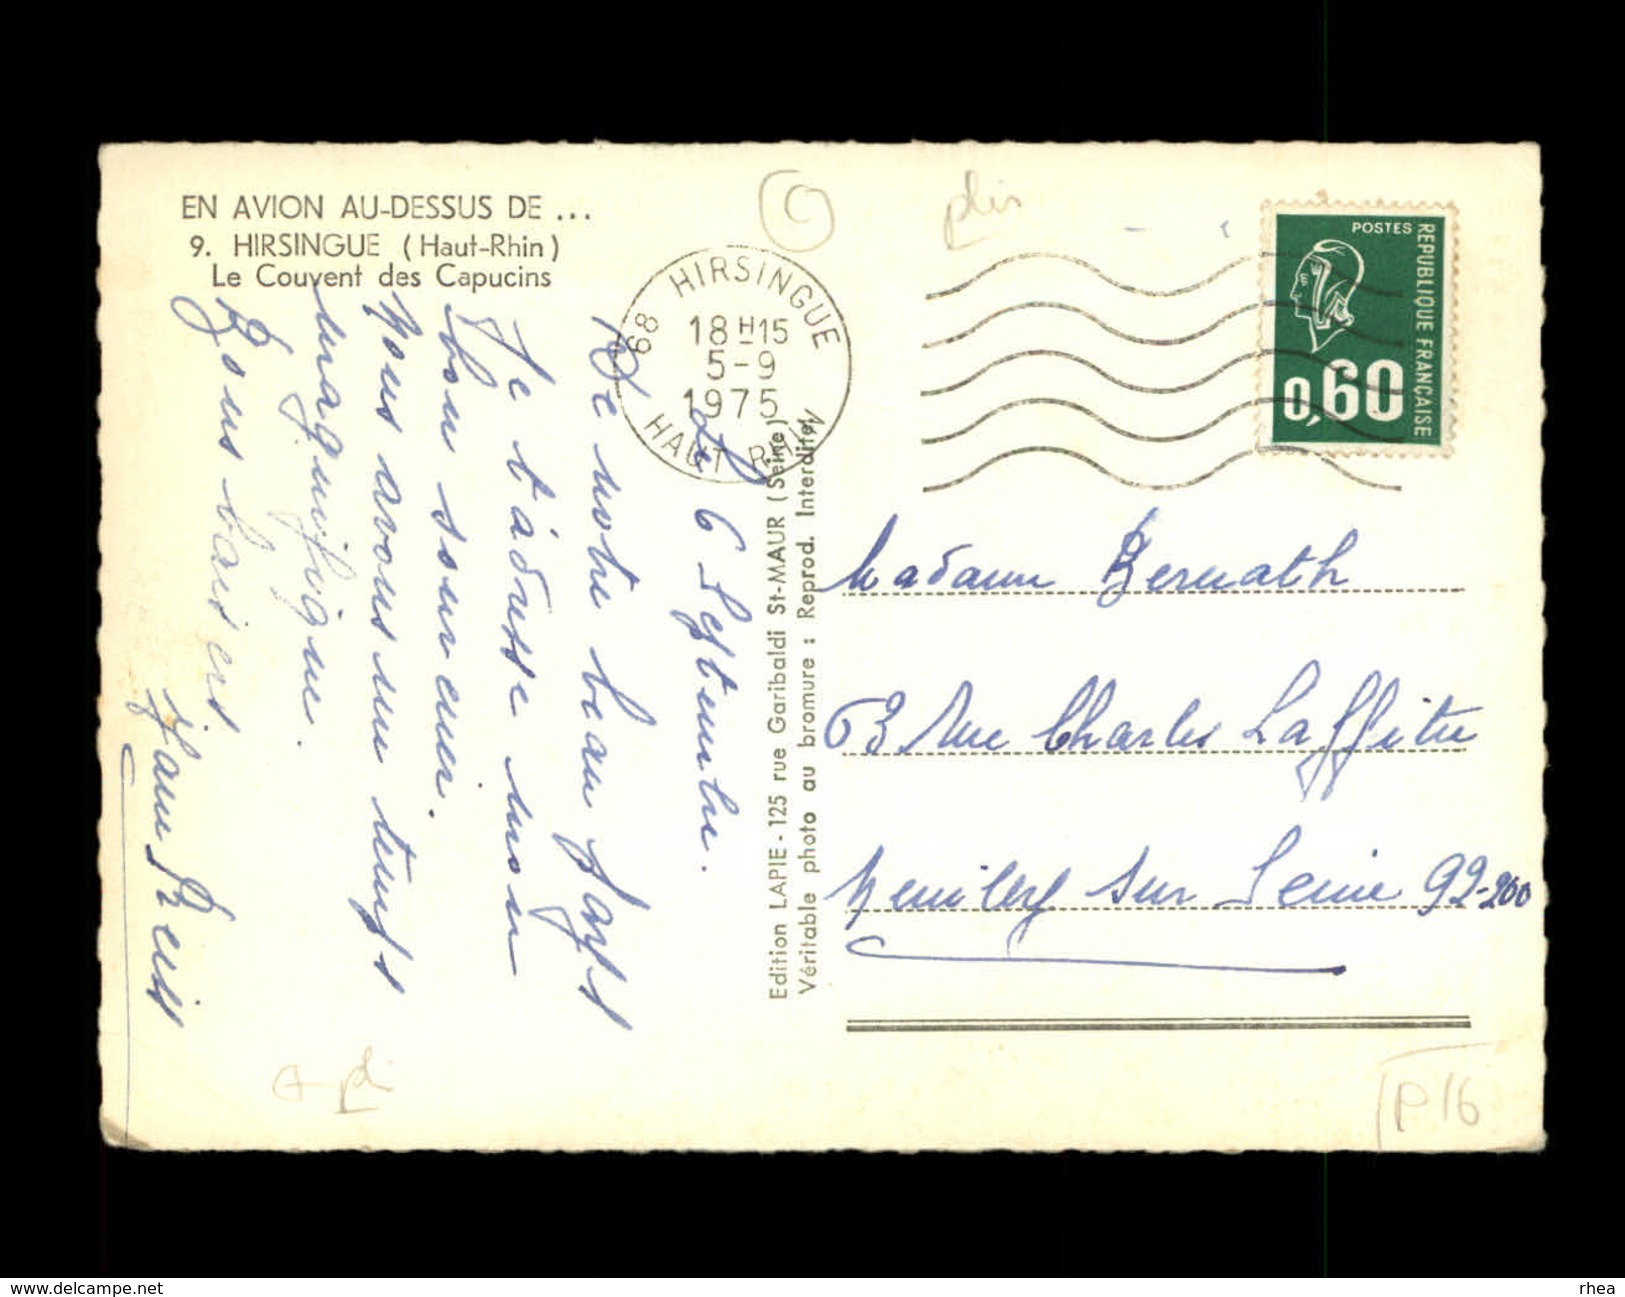 EN AVION AU-DESSUS DE ...
9. HIRSINGUE (Haut-Rhin)
Le Couvent des Capucins
68 HIRSINGUE
18 H 15
5-9
1975
HAUT RHIN
Le 6 Septembre.
De notre beau pays
Je t'adresse mon
bon souvenir.
Nous avons un temps
magnifique.
Bons baisers
Edition LAPIE - 125 rue Garibaldi St-MAUR (Seine)
Véritable photo au bromure : Reprod. Interdite.
plis
POSTES
REPUBLIQUE FRANÇAISE
0,60
Madame Bernath
63 Rue Charles Laffitte
Neuilly sur Seine 92-200
P16
rhea
delcampe.net